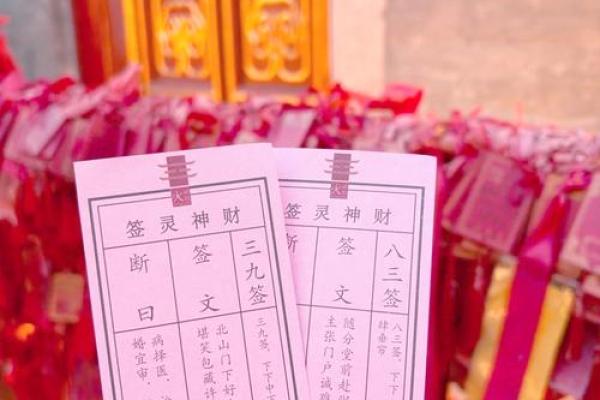 财神灵签
三九签
签文
断曰
三九签，下下中下
北山门下好
堪笑包藏许
病择医，
婚宜审，
财神灵签
八三签
签文
断
八三签，下下
肆垂帘
随分堂前赴
主张门户诚难